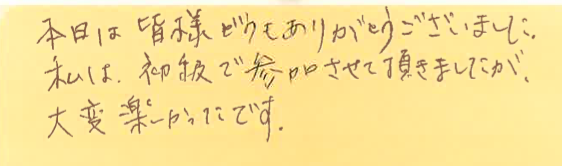 本日は皆様どうもありがとうございました。
私は、初級で参加させて頂きましたが、
大変楽しかったです。